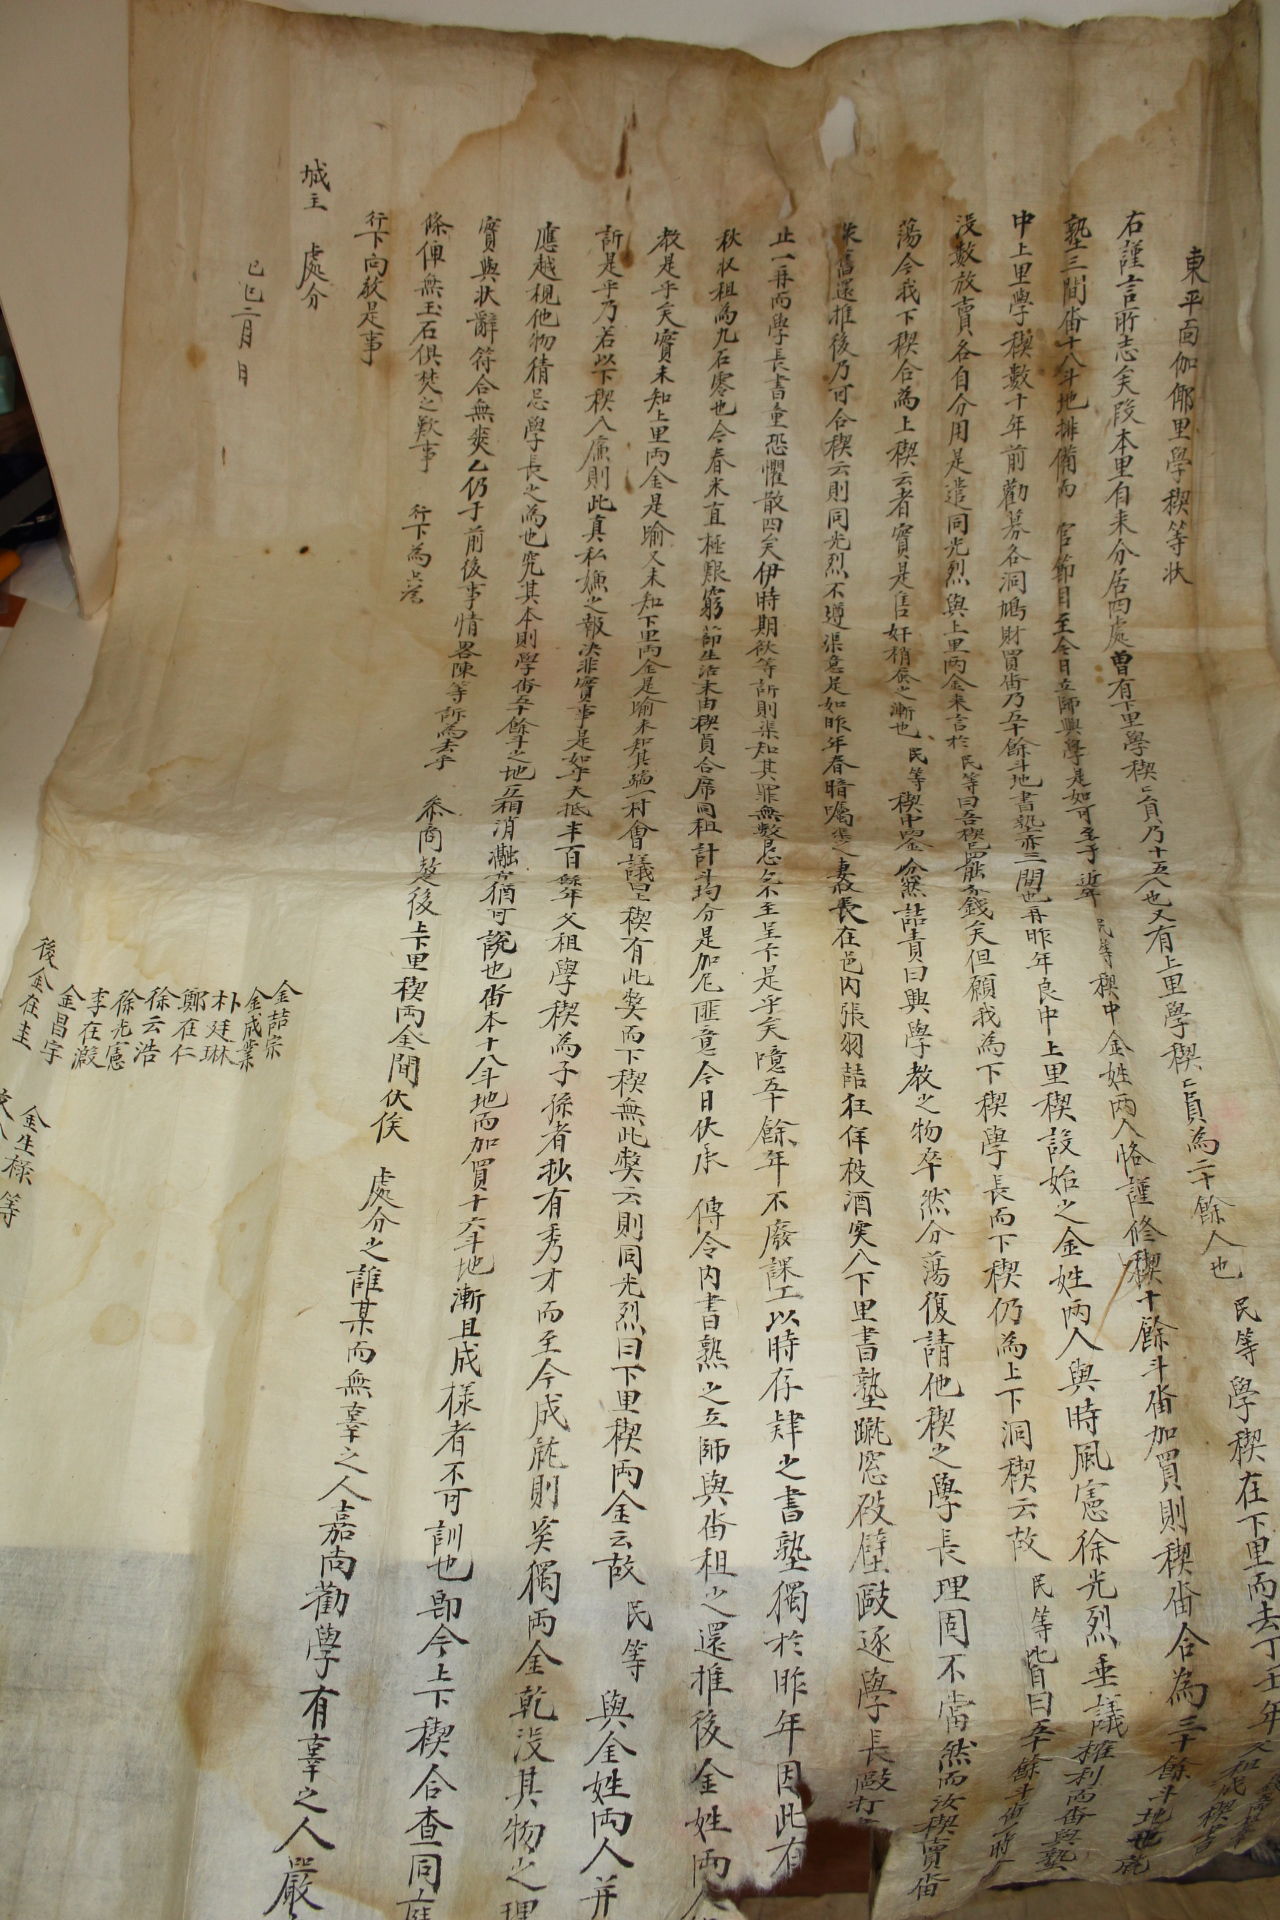 東平面伽倻里學稧等狀
右謹言所志矣段本里自来分居四處曾有下里學稧〻員乃十五人也又有上里學稧〻員為二十餘人也 民等學稧在下里而去丁壬年
塾三間畓十八斗地排備而 官節目至今日立師興學是如可至于近年 民等稧中金姓兩人恪謹修稧十餘斗畓加買則稧畓合為三十餘斗地也
中上里學稧數十年前勸募各洞鳩財買畓乃五十餘斗地書塾亦三間也再昨年良中上里稧設始之金姓兩人與時風憲徐光烈垂議推利而畓與塾
没數放賣各自分用是遣同光烈與上里兩金来言於 民等曰吾稧已分錢矣但願我為下稧學長而下稧仍為上下洞稧云故 民等皆曰五十餘斗畓一時
蕩今我下稧合為上稧云者實是售奸稍蚕之漸也 民等稧中兩金 忿然詰責曰興學教之物卒然分蕩復請他稧之學長理固不當然而汝稧賣畓
舊還推後乃可合稧云則同光烈不遵渠意是如昨年春暗囑渠之妻 長在邑內張羽喆狂佯被酒突入下里書塾蹴窓破壁毆逐學長毆打
止一再而學長書童恐懼散四矣伊時期欲等訴則渠知其罪無數懇乞不至呈卞是乎矣噫五十餘年不廢課工以時存肄之書塾獨於昨年因此有
秋收租為九石零也今春米直極艱窮節生活末由稧員合席同租計斗均分是加尼匪意今日伏承 傳令內書塾之立師與畓租之還推後金姓兩人
教是乎矣實未知上里兩金是喩又未知下里兩金是喩未知其端一村會議呈稧有此獘而下稧無此獘云則同光烈曰下里稧兩金云故 民等 與金姓兩人并
訴是乎乃若以下稧入廉則此真私嫌之報決非實事是如乎大抵半百餘年父祖學稧為子孫者抄有秀才而至今成㡳則奚獨兩金乾没其物之理
應越視他物猜忌學長之為也究其本則學畓五十餘斗之地互相消瀜猶可說也畓本十八斗地而加買十六斗地漸且成樣者不可訓也卽今上下稧合查同庭
實與狀辭符合無爽乙仍于前後事情畧陳等訴為去乎 叅商敎後上下里稧兩金間伏俟 處分之誰某而無辜之人嘉尚勸學有辜之人嚴
條俾無玉石俱焚之歎事 行下為㫆
行下向敎是事
城主 處分
己巳二月 日
金喆宗
金成業
朴廷琳
鄭在仁
徐云浩
徐光憲
李在瀫
金昌宇
後金在圭
金生祿 等